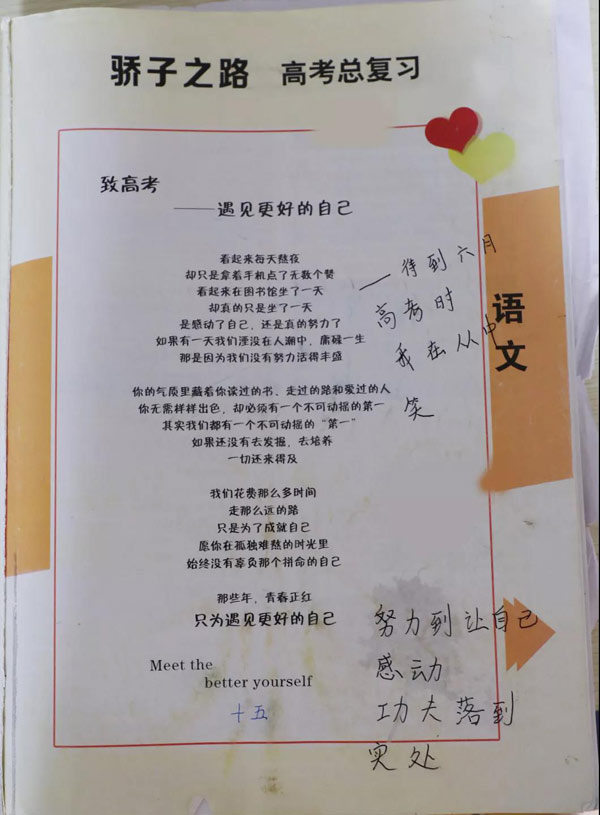 骄子之路 高考总复习
致高考
——遇见更好的自己
看起来每天熬夜
却只是拿着手机点了无数个赞
看起来在图书馆坐了一天
却真的只是坐了一天
是感动了自己，还是真的努力了
如果有一天我们湮没在人潮中，庸碌一生
那是因为我们没有努力活得丰盛
—待到六月
高考时
我在从中
笑
语文
你的气质里藏着你读过的书、走过的路和爱过的人
你无需样样出色，却必须有一个不可动摇的第一
其实我们都有一个不可动摇的“第一”
如果还没有去发掘，去培养
一切还来得及
我们花费那么多时间
走那么远的路
只是为了成就自己
愿你在孤独难熬的时光里
始终没有辜负那个拼命的自己
那些年，青春正红
只为遇见更好的自己
Meet the
better yourself
十五
努力到让自己
感动
功夫落到
实处